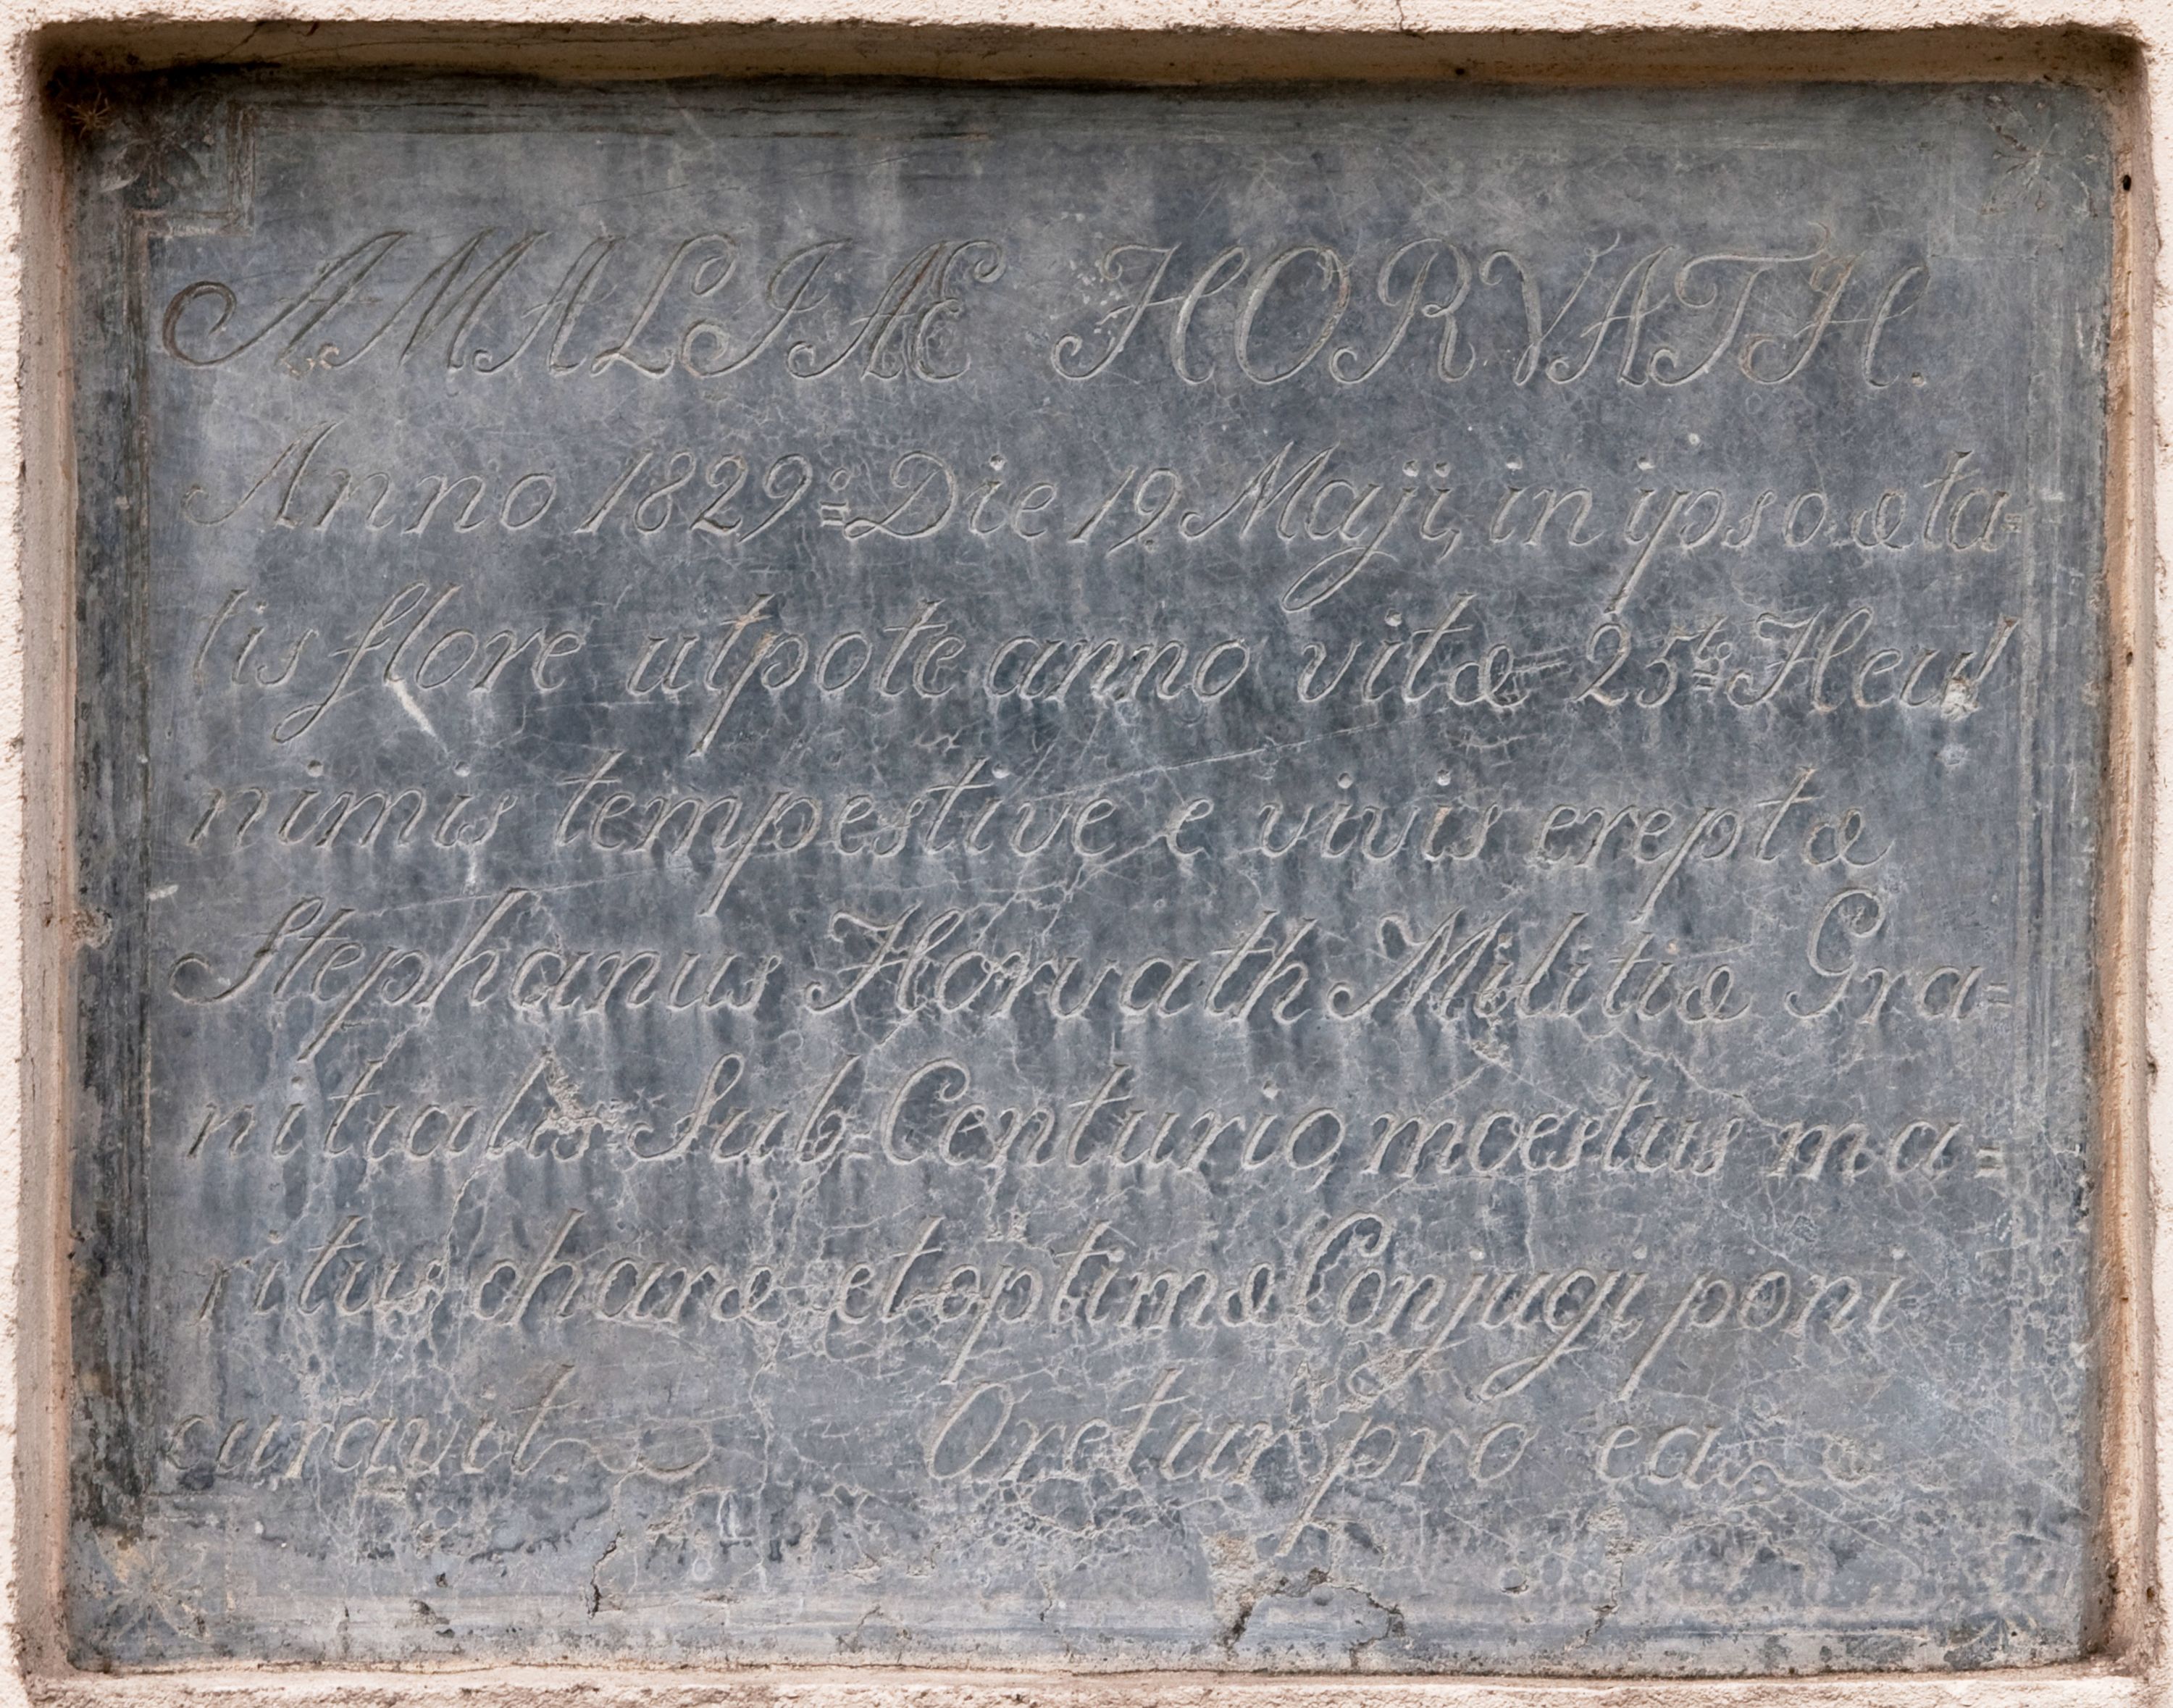 AMALIÆ HORVATH.
Anno 1829º Die 19 Maji, in ipso æta=
tis flore utpote anno vitæ 25to Heu!
nimis tempestive e vivis ereptæ
Stephanus Horvath Militiæ Gra=
nitialis Sub-Centurio, moestus ma=
ritus charæ et optimæ Conjugi poni
curavit. Oretur pro ea